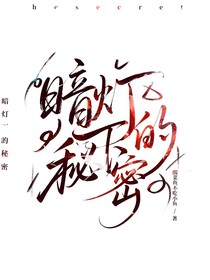 hesecret
暗灯下的秘密
暗灯下
的秘密
假菜鱼不吃小鱼/著